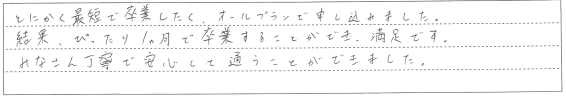 とにかく最短で卒業したく、オールプランで申し込みました。
結果、ぴったり1ヶ月で卒業することができ、満足です。
みなさん丁寧で安心して通うことができました。